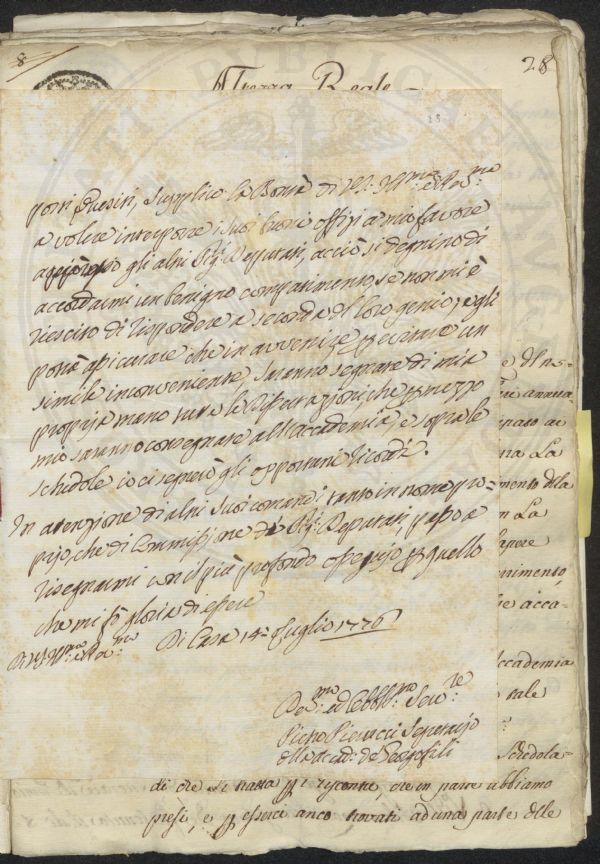 8
28
Altezza Reale
18
posti Quesiti, Supplico la Bontà di V.S. Ill.ma e R.ma
a volere interporre i suoi buoni offizj a mio favore
gli altri Sig.ri Deputati, acciò si degnino di
accordarmi un benigno compatimento, se non mi è
riescito di rispondere a seconda del loro genio, e gli
potrà assicurare che in avvenire per evitare un
simile inconveniente, saranno segnate di mia
propria mano tutte le Dissertazioni, che per mezzo
mio saranno consegnate all'Accademia, e sopra le
schedole io ci segnerò gli opportuni ricordi.
In attenzione di altri Suoi comandi tanto in nome pro-
prio, che di Commissione de Sig.ri Deputati, passo a
rassegnarmi con il più profondo ossequio per quello
che mi fò gloria di essere
Di V.S. Ill.ma e R.ma
Di Casa 14 Luglio 1776
Dev.mo ed Obbl.mo Serv.re
Pietro Pierucci Segretario
dell'Accad. de Georgofili
La
mento della
La
sapere
accademia
tale
Schedola-
di che si tratta per i riscontri, che in parte abbiamo
presi, e per esserci anco trovati ad una parte delle